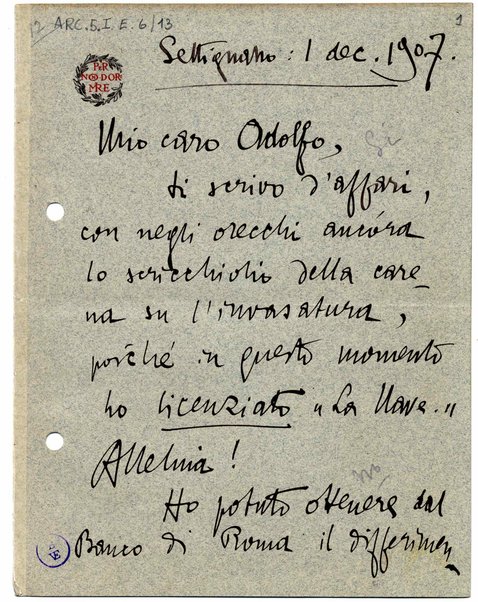 2 ARC.5.I.E.6/13
1
PER
NON DOR
MIRE
Settignano: 1 dec. 1907.
Mio caro Adolfo,
Si
ti scrivo d'affari,
con negli orecchi ancóra
lo scricchiolio della care-
na su l'invasatura,
poiché in questo momento
ho licenziato "La Nave."
Alleluia!
no
Ho potuto ottenere dal
Banco di Roma il differimen